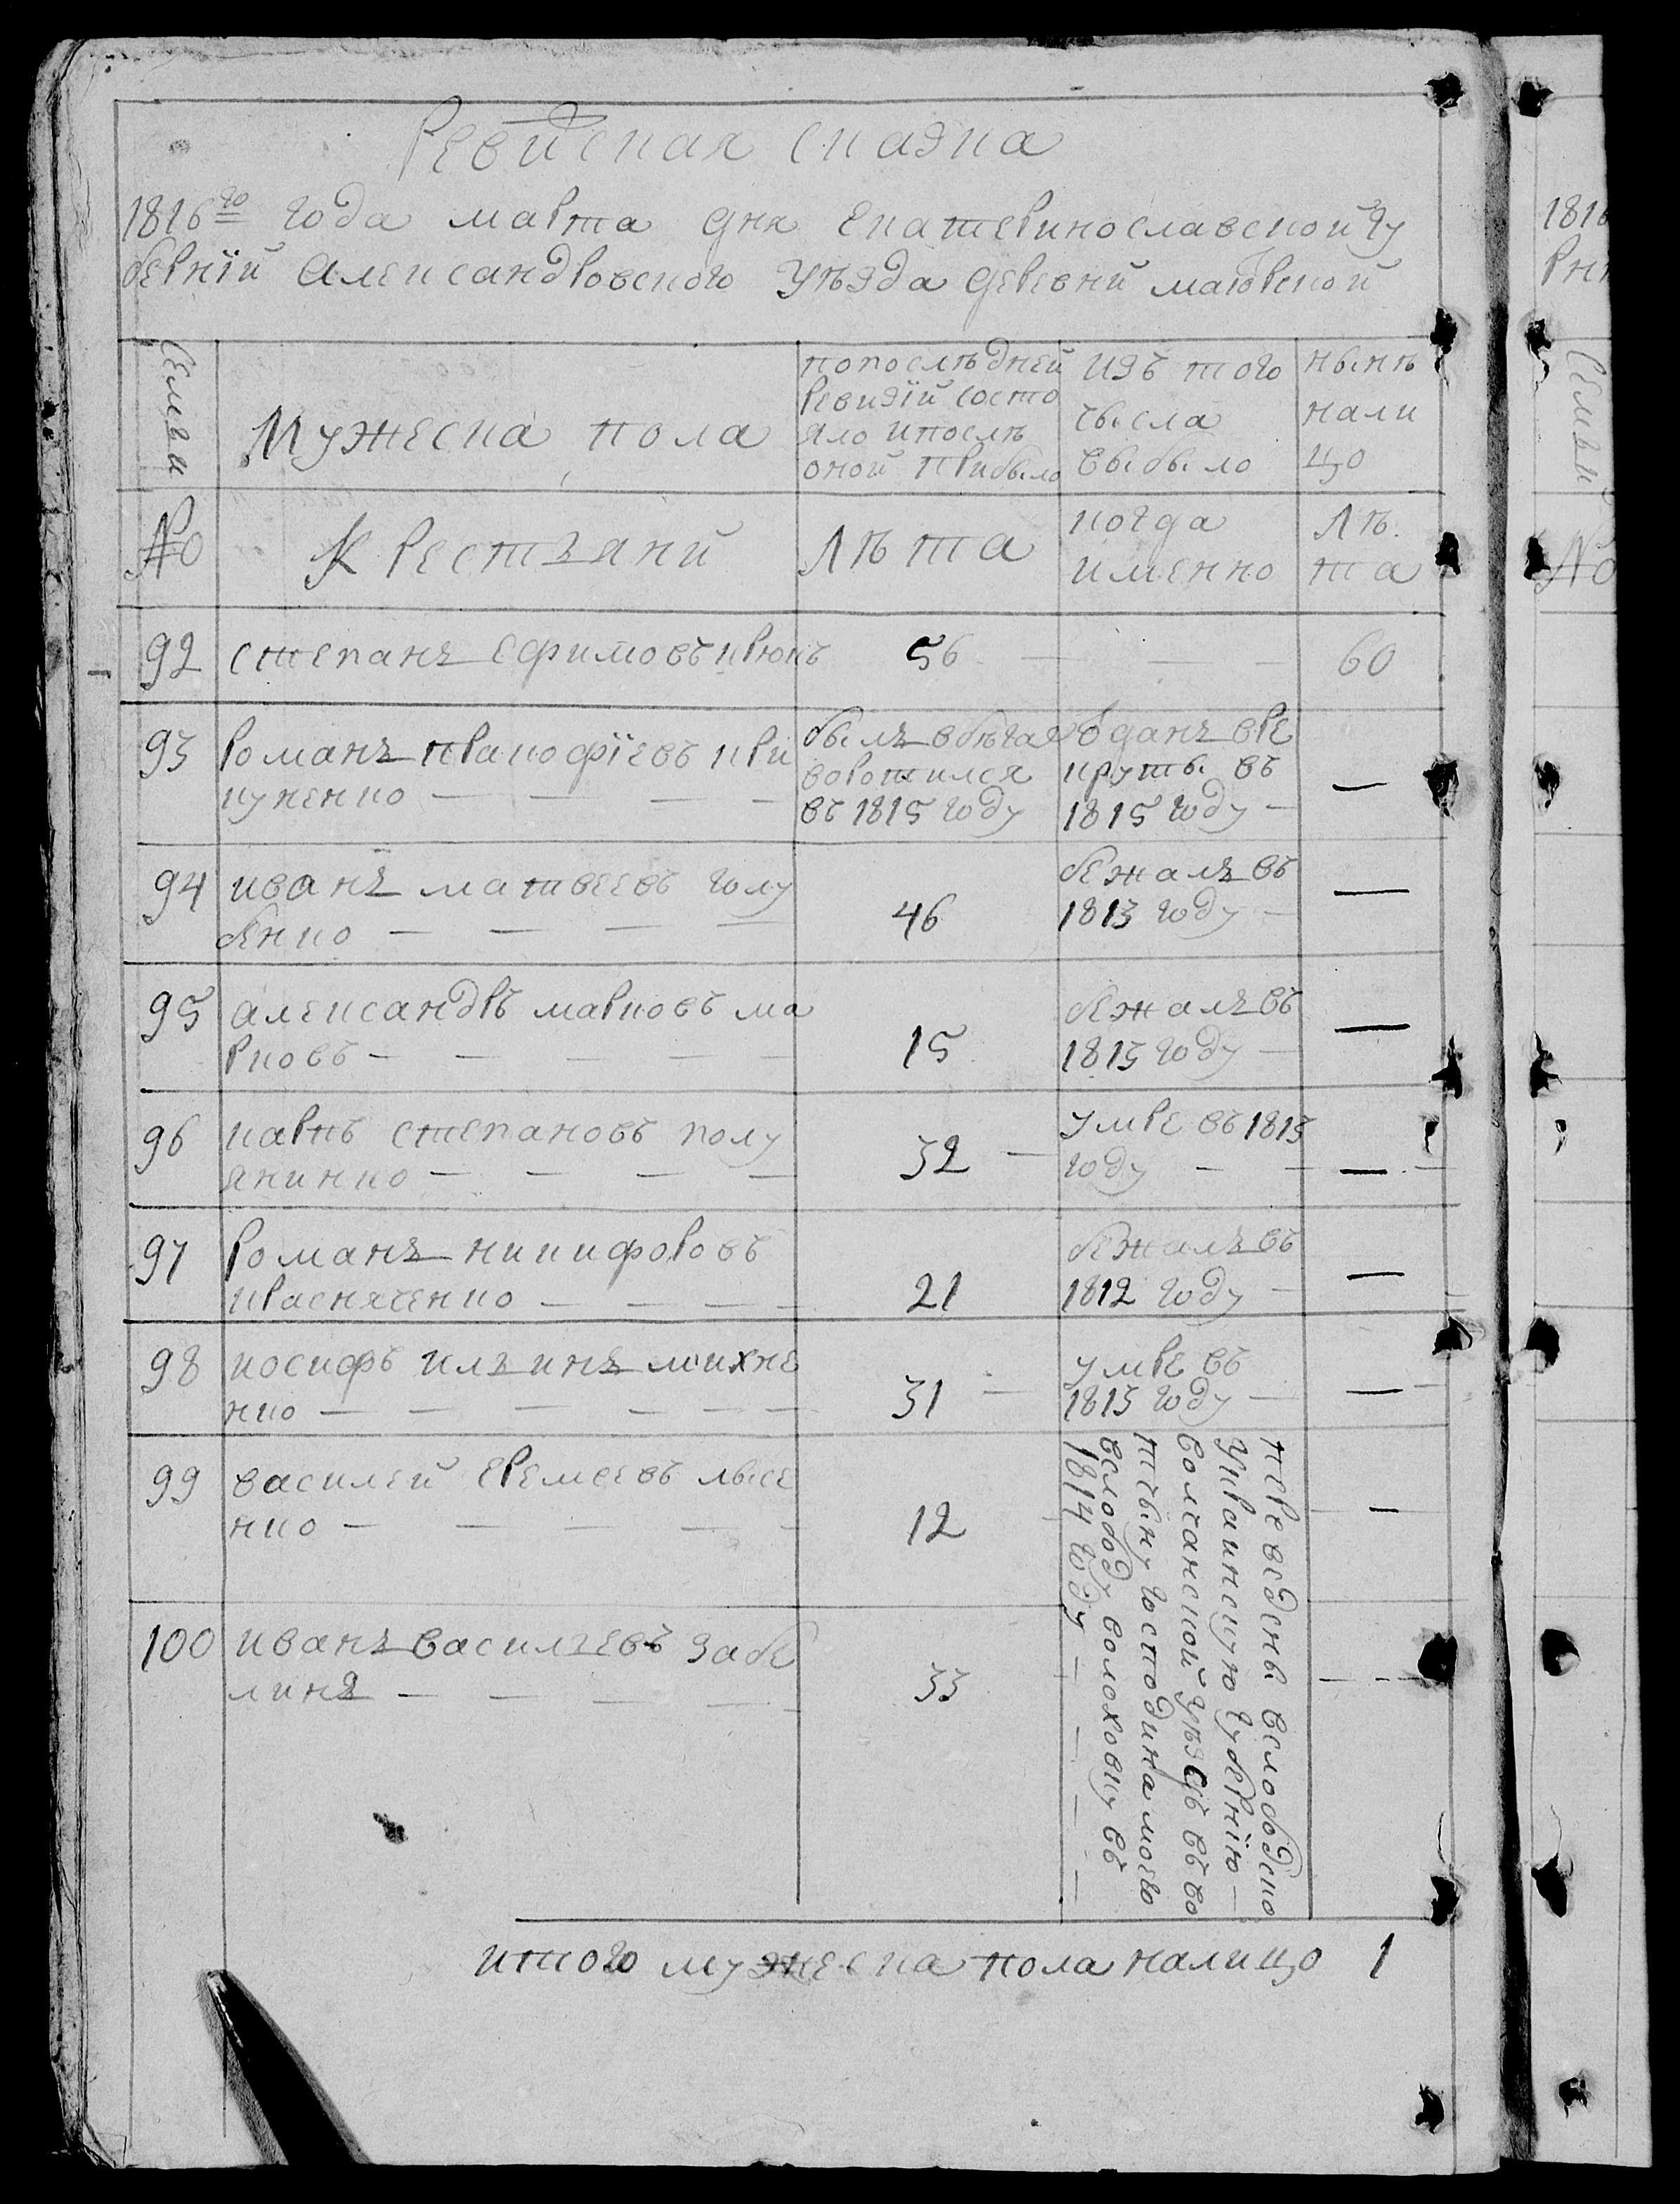 Ревиская скаэка
1816го года марта дня екатеринославской гу
бернїй александровского уѣзда деревни маюрской
Семьи
Мужеска пола
попослѣдней
ревизїй состо
яло ипослѣ
оной прибыло
изъ того
чысла
выбыло
нынѣ
нали
цо
№
Крестьяни
Лѣта
когда
именно
Лѣ.
та
92 степанъ ефимовъ крюкъ 56 — — — 60
93 романъ пракофїевъ кри
куненко — — — —
былъ вбѣгах
воротился
въ 1815 году
ѿданъ вре
круты въ
1815 году —
—
94 иванъ матвеевъ голу
бенко — — — —
46
бежалъ въ
1813 году —
—
95 александръ марковъ ма
рковъ — — — — —
15
бежалъ въ
1813 году —
—
96 карпъ степановъ полу
янинко — — — —
32 —
умре въ 1813
году — —
— —
97 романъ никифоровъ
красняченко — — — —
21
бежалъ въ
1812 году —
—
98 иосифъ ильинъ михне
нко — — — — — —
31 —
умре въ
1813 году —
— —
99 василей еремеевъ лысе
нко — — — — —
12
—
100 иванъ васильевъ забе
линъ — — — —
33
— — —
переведены вслободско
украинскую губернїю —
волчанской уѣздъ въ во
тчыну господина моево
вслободу волоховку въ
1814 году — — — —
итого мужеска пола налицо 1
1816
рнї
Семьи
№